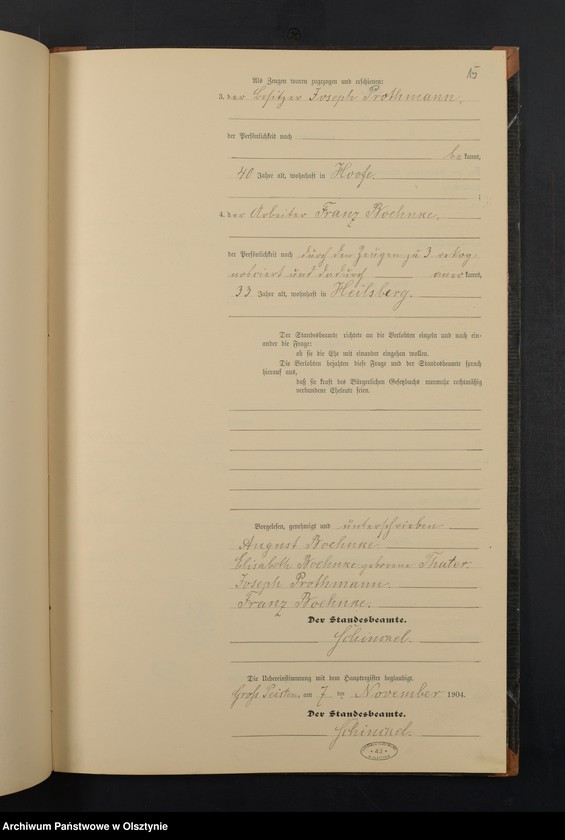 15
Als Zeugen waren zugezogen und erschienen:
3. der Besitzer Joseph Prothmann,
der Persönlichkeit nach
be kannt,
40 Jahre alt, wohnhaft in Hoofe.
;
4. der Arbeiter Franz Boehnke.
der Persönlichkeit nach durch den Zeugen zu 3 rekog-
nosciert und dadurch aner kannt,
33 Jahre alt, wohnhaft in Heilsberg.
Der Standesbeamte richtete an die Verlobten einzeln und nach ein-
ander die Frage:
ob sie die Ehe mit einander eingehen wollen.
Die Verlobten bejahten diese Frage und der Standesbeamte sprach
hierauf aus,
daß sie kraft des Bürgerlichen Gesetzbuchs nunmehr rechtmäßig
verbundene Eheleute seien.
Vorgelesen, genehmigt und unterschrieben
August Boehnke
Elisabeth Boehnke geborene Thater.
Joseph Prothmann.
Franz Boehnke.
Der Standesbeamte.
Schinkel.
Die Uebereinstimmung mit dem Hauptregister beglaubigt.
Groß Peisten, am 7 ten November 1904.
Der Standesbeamte.
Schinkel.
42
Archiwum Państwowe w Olsztynie